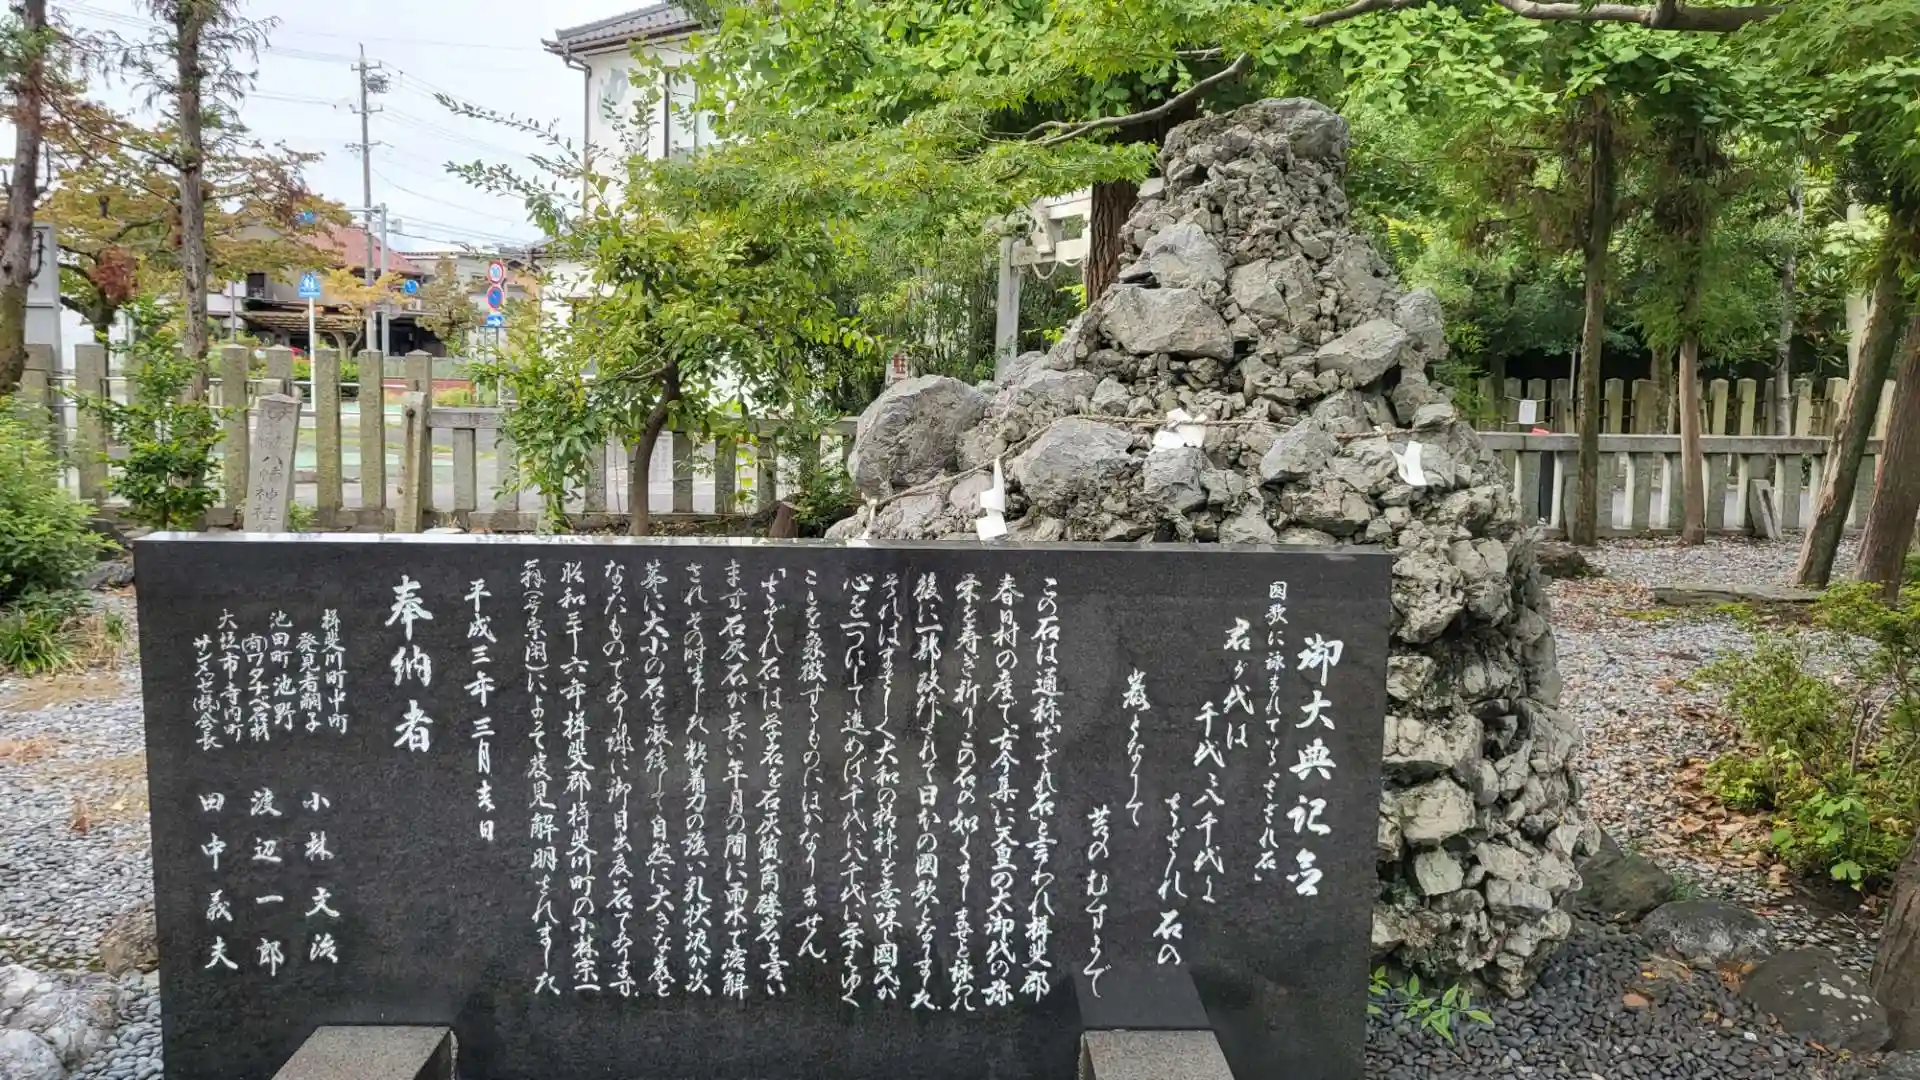 御大典記念
国歌に詠まれている〝さざれ石〟
君が代は
千代に八千代に
さざれ石の
巌となりて
苔のむすまで
この石は通称〝さざれ石〟と言われ揖斐郡
春日村の産で、古今集に天皇の大御代の弥
栄を寿ぎ祈りこの石の如くましませと詠われ
後に一部改作されて日本の国歌となりました
それはまさしく大和の精神を意味し国民が
心を一つにして進めば千代に八千代に栄えゆく
ことを象徴するものにほかなりません
「さざれ石」は学名を石灰質角礫岩と言い
ます。石灰石が長い年月の間に雨水で溶解
され、その時生じた粘着力の強い乳状液が次
第に大小の石を凝結して自然に大きな巌と
なったものであり誠に御目出度石であります。
昭和三十六年揖斐郡揖斐川町の小林宗一
により発見解明されました
平成三年三月吉日
奉納者
揖斐川町中町
発見者嗣子
小林文治
池田町池野
渡辺一郎
大垣市寺内町
田中義夫
八幡神社